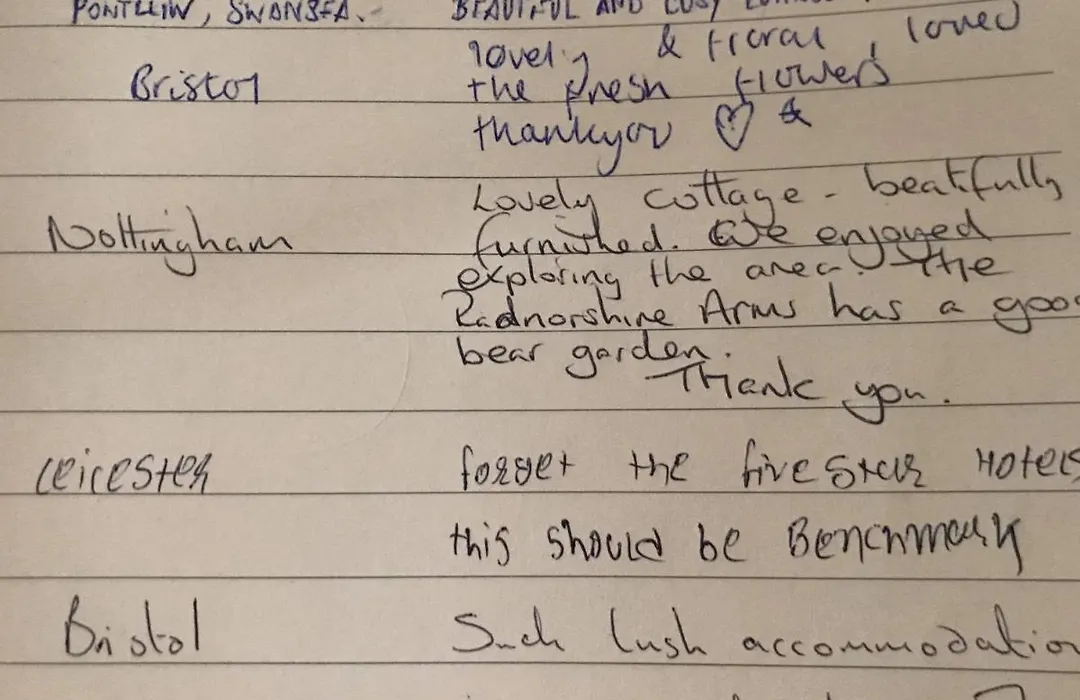 PONTLLIW, SWANSEA. BEAUTIFUL AND COSY
lovely & floral, loved
Bristol the fresh flowers
thankyou ♡ &
Lovely cottage - beatifully
Nottingham furnished. We enjoyed
exploring the area. The
Radnorshire Arms has a goo
bear garden.
Thank you.
Leicester forget the five Star HOTELS
this should be Benchmark
Bristol Such lush accommodation